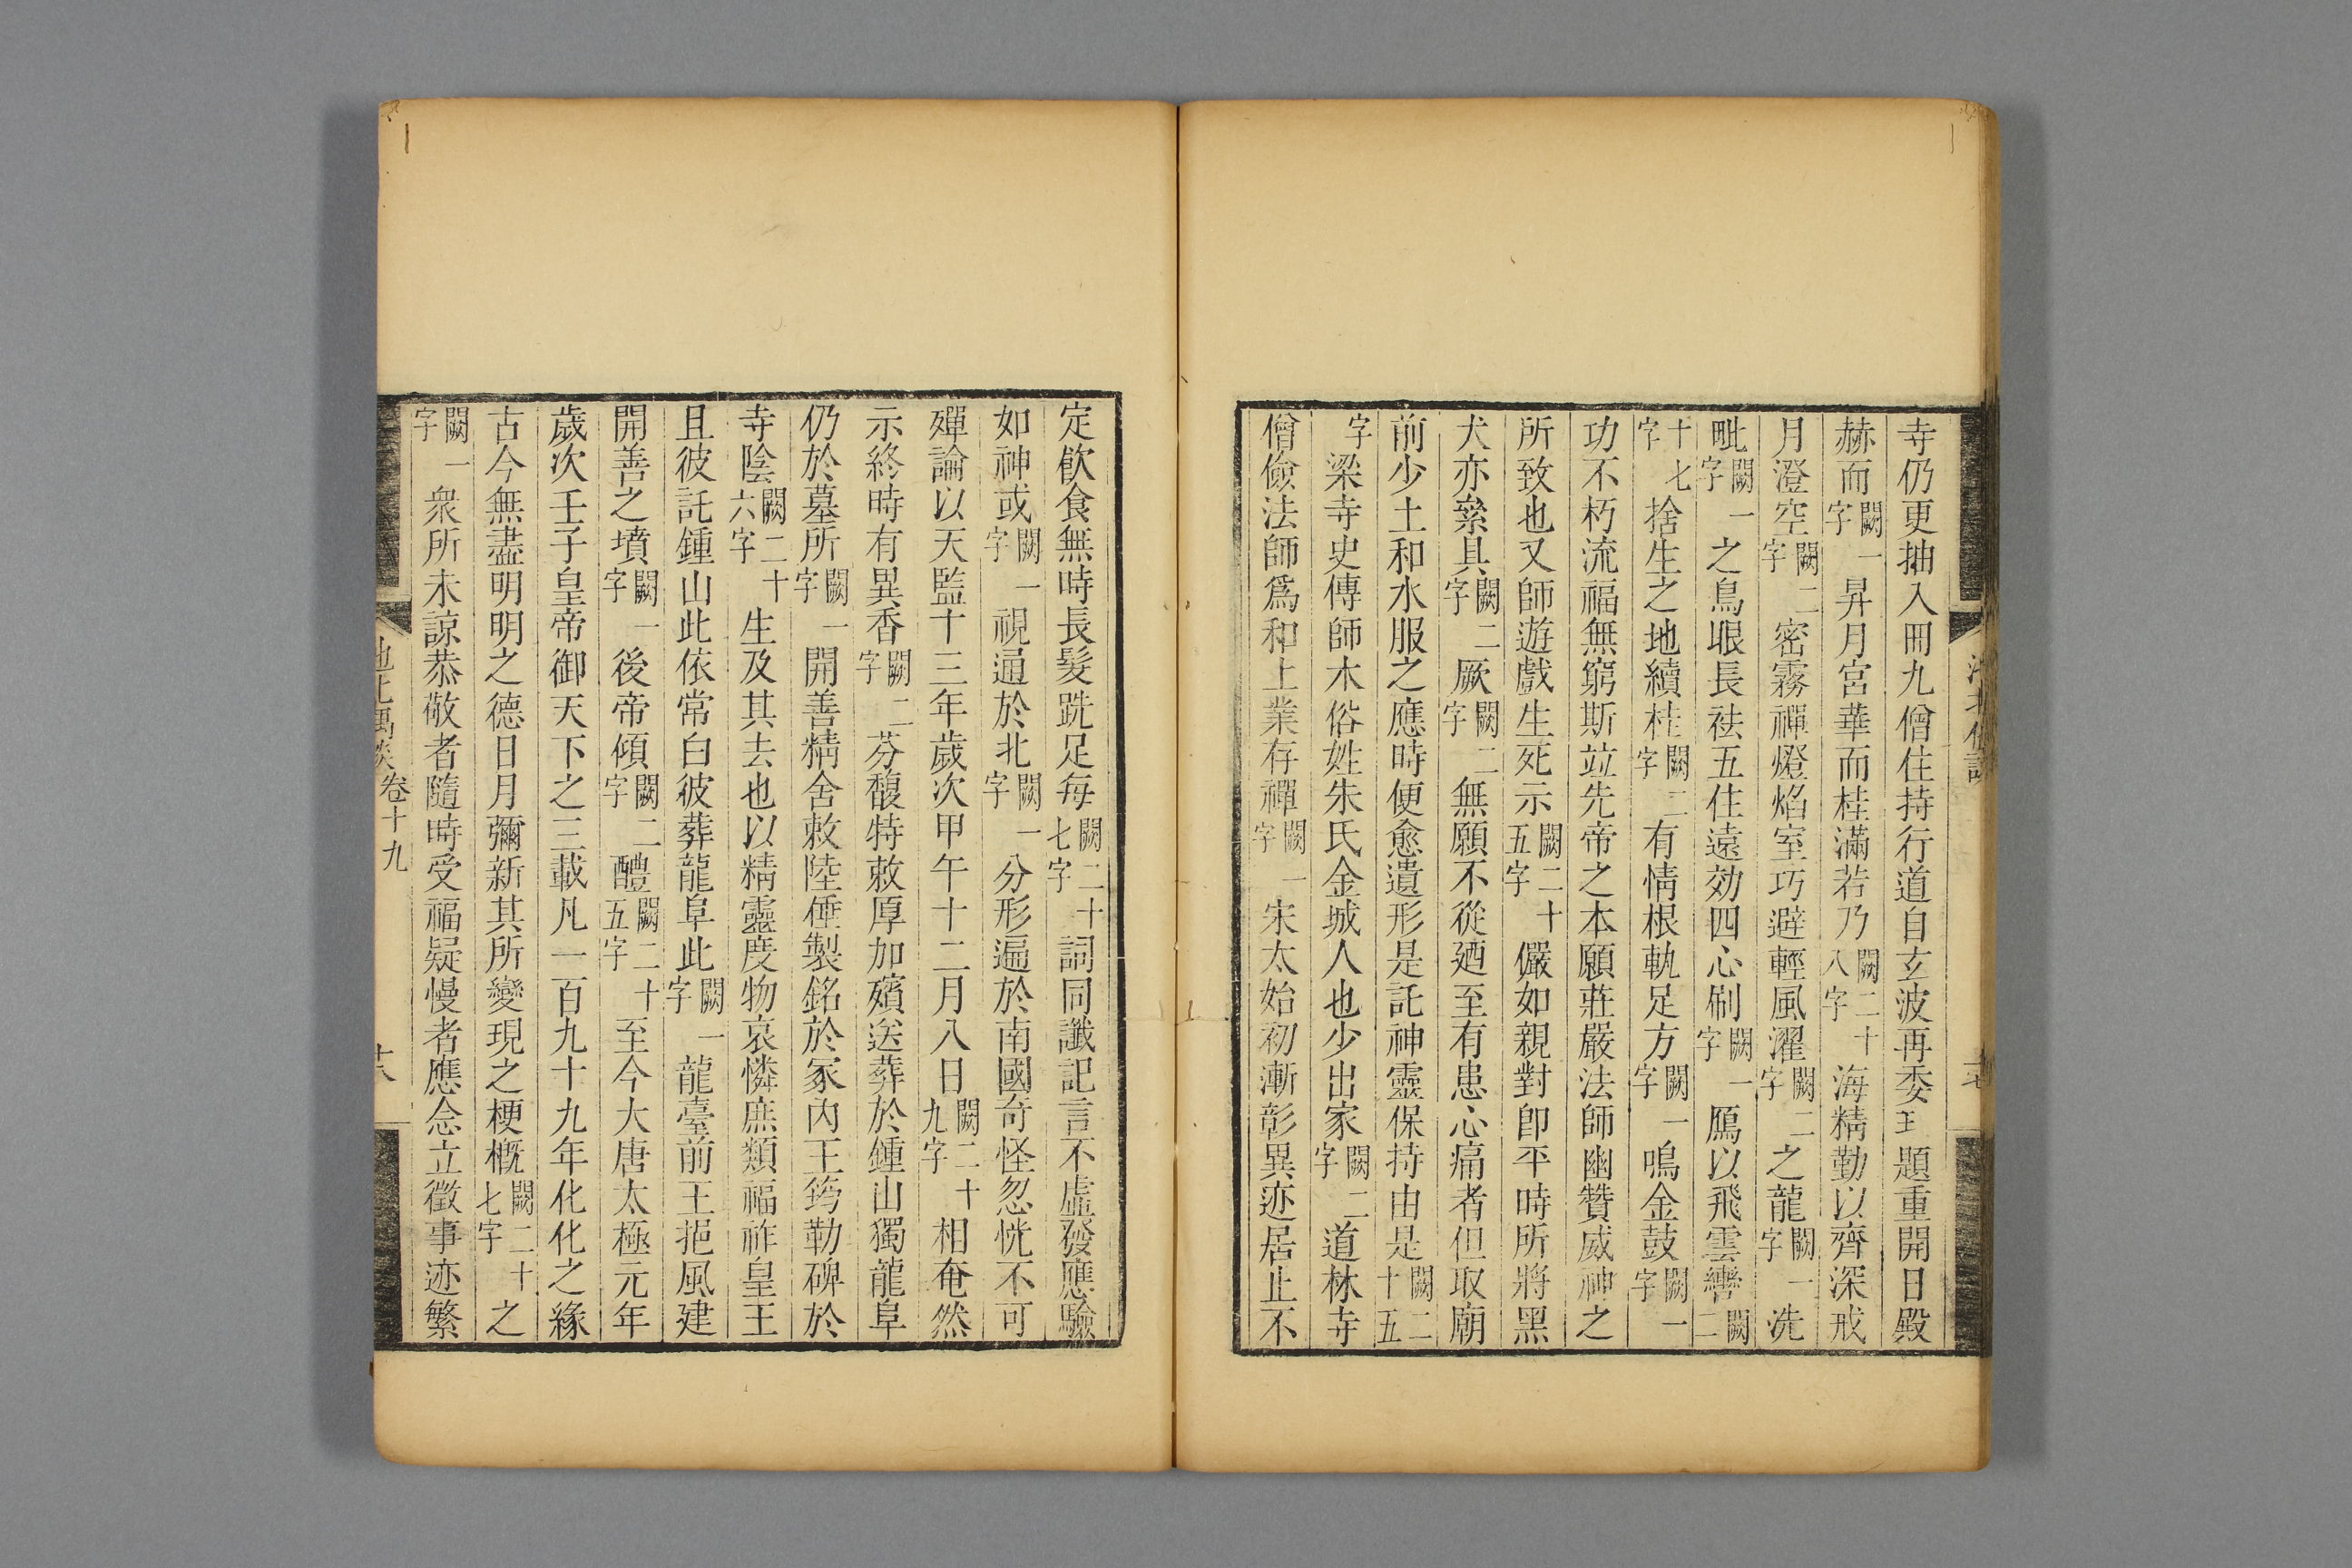 寺仍更抽入冊九僧住持行道自玄波再委王題重開日殿
赫而闕一字昇月宮華而桂滿若乃闕二十八字海精勤以齊深戒
月澄空闕二字密霧禪燈焰室巧避輕風濯闕二字之龍闕一字洗
毗闕一字之鳥眼長袪五住遠効四心刷闕一字鴈以飛雲轡闕二
十七字捨生之地續桂闕二字有情根軌足方闕一字鳴金鼓闕一字
功不朽流福無窮斯竝先帝之本願莊嚴法師幽贊威神之
所致也又師遊戲生死示闕二十五字儼如親對卽平時所將黑
犬亦縈具闕二字厥闕二字無願不從廼至有患心痛者但取廟
前少土和水服之應時便愈遺形是託神靈保持由是闕二十五
字梁寺史傳師木俗姓朱氏金城人也少出家闕二字道林寺
僧儉法師爲和上業存禪闕一字宋太始初漸彰異迹居止不
定飮食無時長髮跣足每闕二十七字詞同讖記言不虛發應驗
如神或闕一字視通於北闕一字分形遍於南國奇怪忽恍不可
殫論以天監十三年歲次甲午十二月八日闕二十九字相奄然
示終時有異香闕二字芬馥特敕厚加殯送葬於鍾山獨龍阜
仍於墓所闕一字開善精舍敕陸倕製銘於冢內王筠勒碑於
寺陰闕二十六字生及其去也以精靈度物哀憐庶類福祚皇王
且彼託鍾山此依常白彼葬龍阜此闕一字龍臺前王挹風建
開善之墳闕一字後帝傾闕二字醴闕二十五字至今大唐太極元年
歲次壬子皇帝御天下之三載凡一百九十九年化化之緣
古今無盡明明之德日月彌新其所變現之梗槪闕二十七字之
闕一字衆所未諒恭敬者隨時受福疑慢者應念立徵事迹繁
池北偶談 卷十九 十八